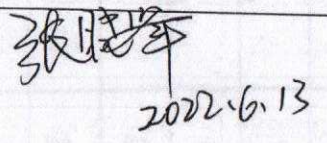 张晓军
2022.6.13